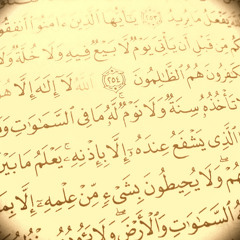 يَفْعَلُ مَا يُرِيدُ ﴿٢٥٣﴾ يَٰٓأَيُّهَا ٱلَّذِينَ ءَامَنُوٓا۟ أَنفِقُوا۟
كُم مِّن قَبْلِ أَن يَأْتِىَ يَوْمٌ لَّا بَيْعٌ فِيهِ وَلَا خُلَّةٌ وَلَا
كَٰفِرُونَ هُمُ ٱلظَّٰلِمُونَ ﴿٢٥٤﴾ ٱللَّهُ لَآ إِلَٰهَ إِلَّا هُوَ
تَأْخُذُهُۥ سِنَةٌ وَلَا نَوْمٌ لَّهُۥ مَا فِى ٱلسَّمَٰوَٰتِ وَمَا
ٱلَّذِى يَشْفَعُ عِندَهُۥٓ إِلَّا بِإِذْنِهِۦ يَعْلَمُ مَا بَيْنَ
هُمْ وَلَا يُحِيطُونَ بِشَىْءٍ مِّنْ عِلْمِهِۦٓ إِلَّا بِمَا
ٱلسَّمَٰوَٰتِ وَٱلْأَرْضَ وَلَا يَـُٔودُهُۥ